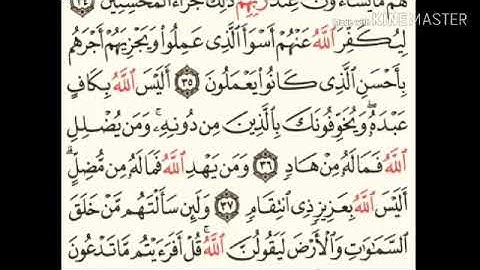 هُم مَّا يَشَآءُونَ عِندَ رَبِّهِمْ ذَٰلِكَ جَزَآءُ ٱلْمُحْسِنِينَ ٣٤
Made with KINEMASTER
لِيُكَفِّرَ ٱللَّهُ عَنْهُمْ أَسْوَأَ ٱلَّذِى عَمِلُوا۟ وَيَجْزِيَهُمْ أَجْرَهُم
بِأَحْسَنِ ٱلَّذِى كَانُوا۟ يَعْمَلُونَ ٣٥ أَلَيْسَ ٱللَّهُ بِكَافٍ
عَبْدَهُۥ ۖ وَيُخَوِّفُونَكَ بِٱلَّذِينَ مِن دُونِهِۦ ۚ وَمَن يُضْلِلِ
ٱللَّهُ فَمَا لَهُۥ مِنْ هَادٍ ٣٦ وَمَن يَهْدِ ٱللَّهُ فَمَا لَهُۥ مِن مُّضِلٍّ ۗ
أَلَيْسَ ٱللَّهُ بِعَزِيزٍ ذِى ٱنتِقَامٍ ٣٧ وَلَئِن سَأَلْتَهُم مَّنْ خَلَقَ
ٱلسَّمَٰوَٰتِ وَٱلْأَرْضَ لَيَقُولُنَّ ٱللَّهُ ۚ قُلْ أَفَرَءَيْتُم مَّا تَدْعُونَ